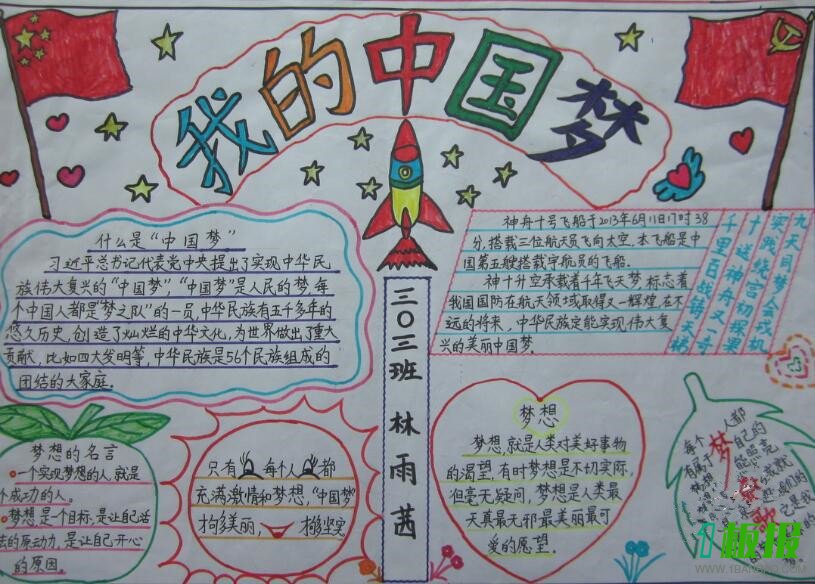 我的中国梦
什么是“中国梦”
习近平总书记代表党中央提出了实现中华民
族伟大复兴的“中国梦”,“中国梦”是人民的梦,每
个中国人都是“梦之队”的一员,中华民族有五千多年的
悠久历史,创造了灿烂的中华文化,为世界做出了重大
贡献,比如四大发明等,中华民族是56个民族组成的
团结的大家庭。
三〇三班 林雨茜
神舟十号飞船于2013年6月11日17时38
分,搭载三位航天员飞向太空。本飞船是中
国第五艘搭载宇航员的飞船。
神十升空承载着千年飞天梦,标志着
我国国防在航天领域取得又一辉煌,在不
远的将来,中华民族定能实现伟大复
兴的美丽中国梦。
九天同梦会戎机
实践绕宫初探果
十送神舟又一奇
千里百战铸天梯
梦想的名言
一个实现梦想的人,就是
个成功的人。
梦想是一个目标,是让自己活
法的原动力,是让自己开心
的原因。
只有 每个人 都
充满激情和梦想,“中国梦”
才够多美丽,才够坚实
梦想
梦想,就是人类对美好事物
的渴望,有时梦想是不切实际,
但毫无疑问,梦想是人类最
天真最无邪最美丽最可
爱的愿望。
每个人都
有属于自己的
梦想
板报
WWW.1BANBAO.COM